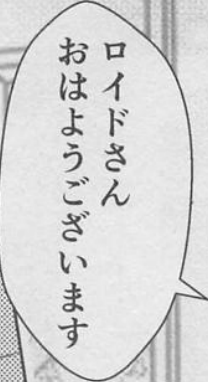 ロイドさん
おはようございます